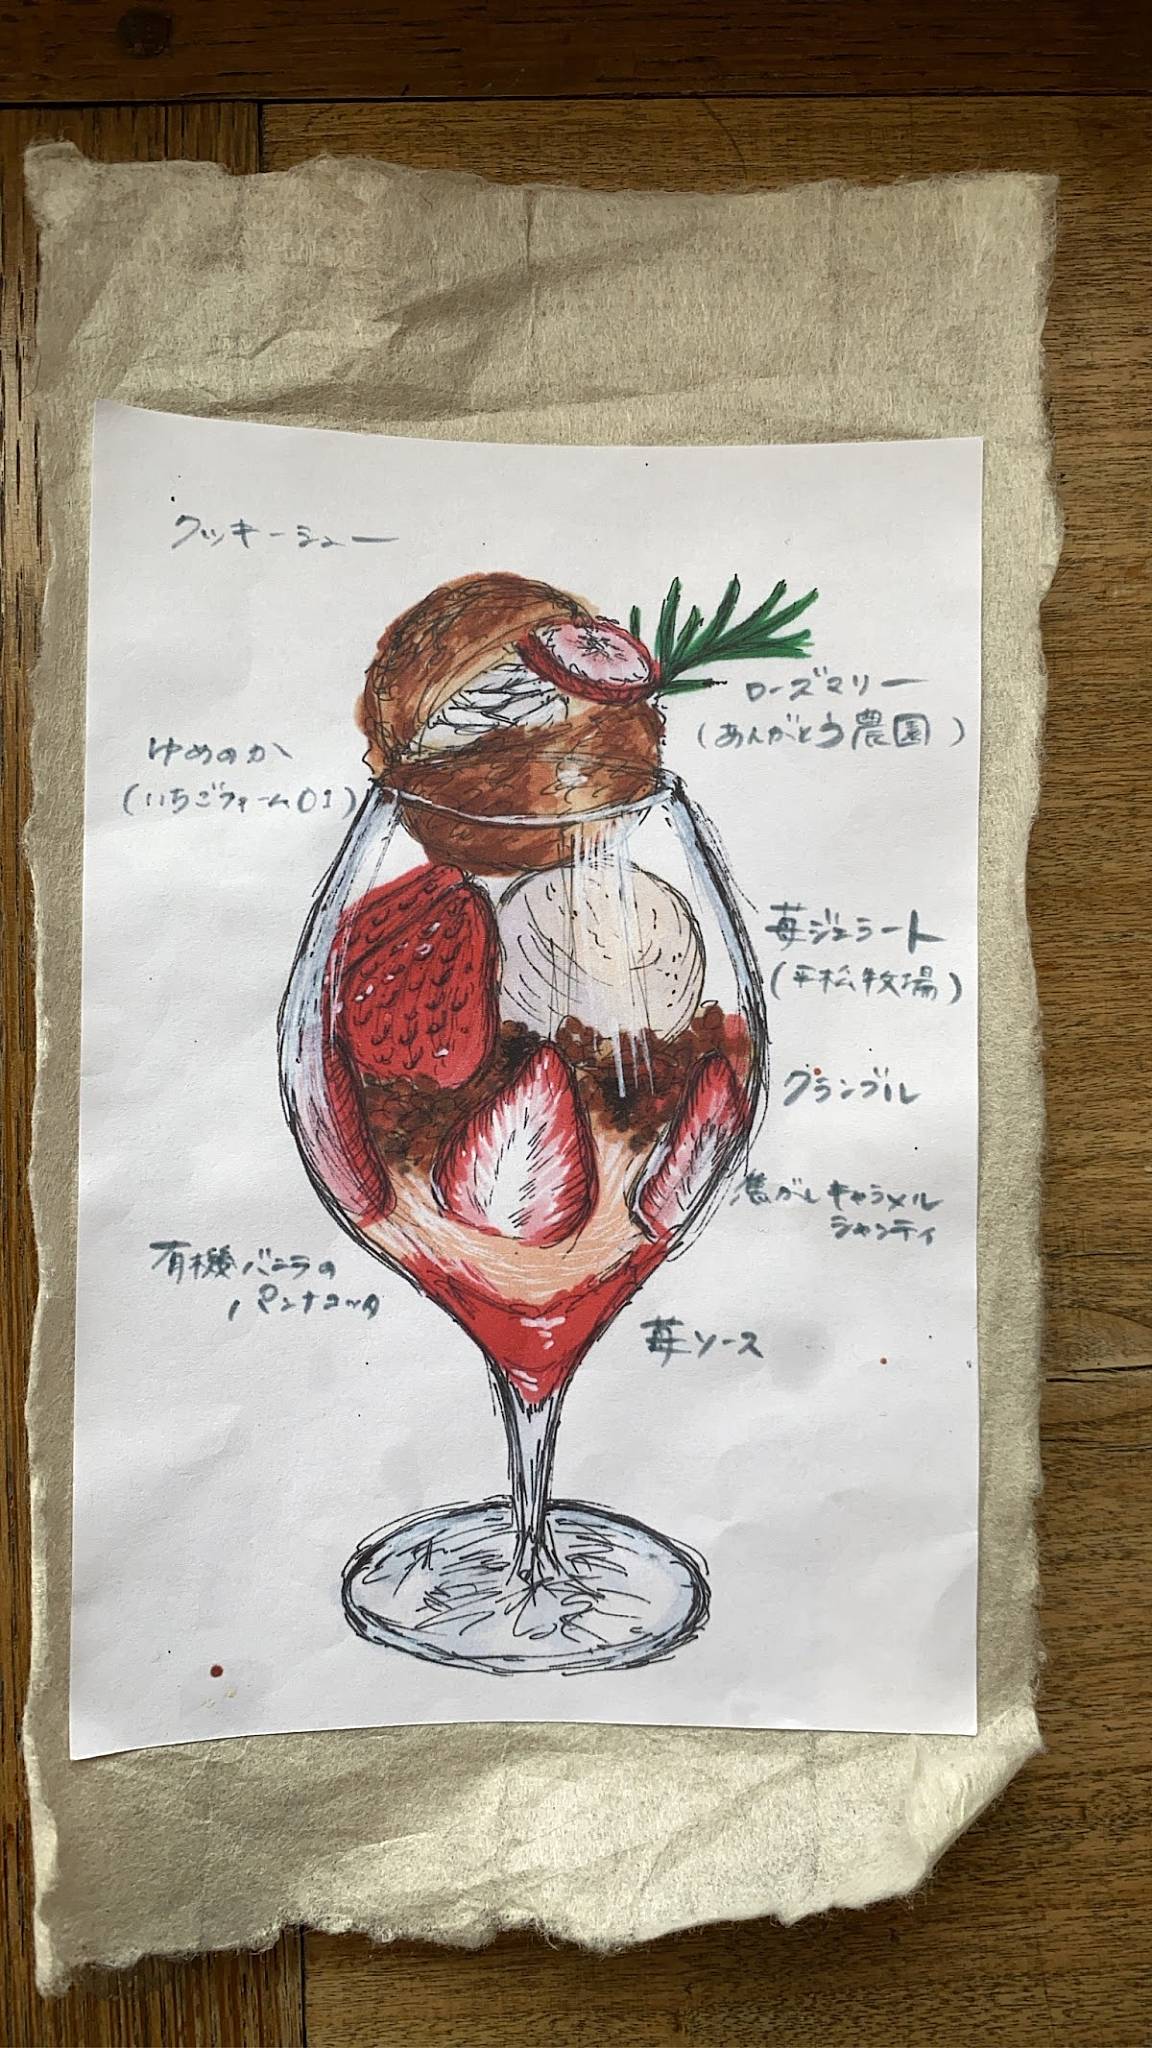 クッキーシュー
ローズマリー
(あんがとう農園)
ゆめのか
(いちごファーム01)
苺ジェラート
(平松牧場)
クランブル
焦がしキャラメル
シャンティ
有機バニラの
パンナコッタ
苺ソース